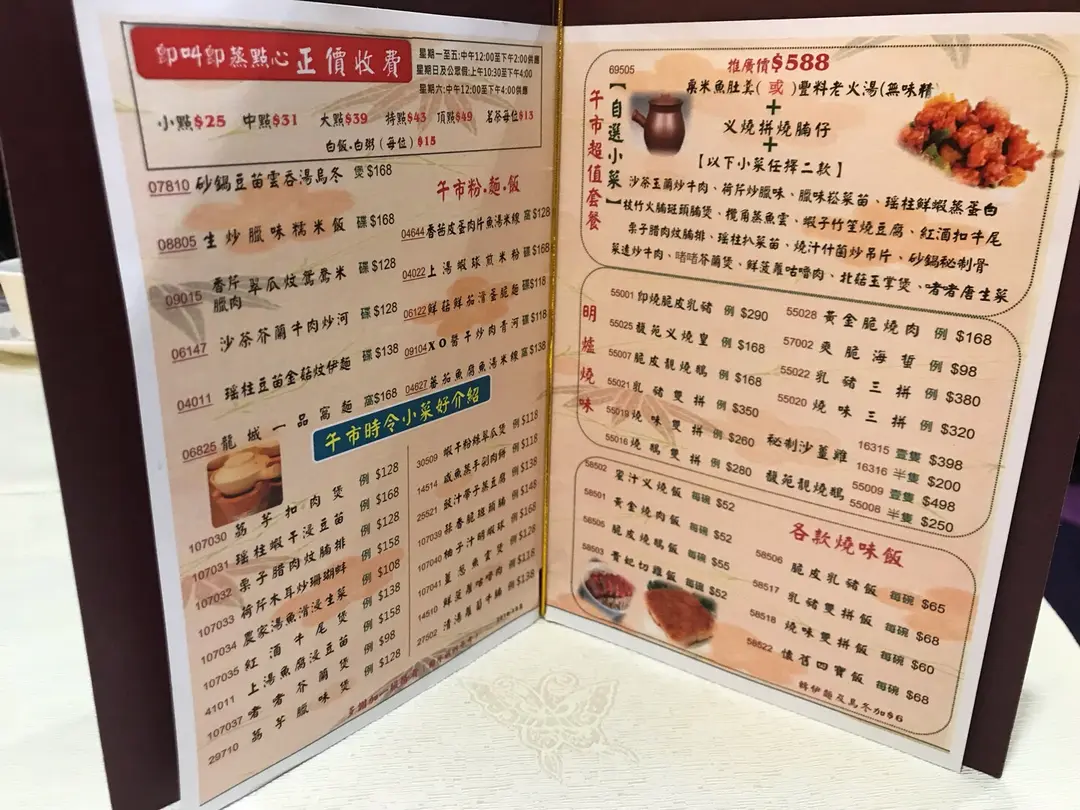 即叫即蒸點心 正價收費
星期一至五:中午12:00至下午2:00供應
星期日及公眾假:上午10:30至下午4:00
星期六:中午12:00至下午4:00供應
小點$25 中點$31 大點$39 特點$43 頂點$49 茗茶每位$13
白飯.白粥(每位)$15
07810 砂鍋豆苗雲吞湯烏冬 煲$168
08805 生炒臘味糯米飯 碟$168
09015 香芹臘肉翠瓜炆鴛鴦米 碟$128
06147 沙茶芥蘭牛肉炒河 碟$128
04011 瑤柱豆苗金菇炆伊麵 碟$138
06825 龍城一品窩麵 窩$168
午市粉.麵.飯
04644 香茜皮蛋肉片魚湯米線 窩$128
04022 上湯蝦球煎米粉 碟$168
06122 鮮菇鮮茄滑蛋脆麵 碟$118
09104 XO醬干炒肉青河 碟$118
04627 蕃茄魚腐魚湯米線 窩$138
午市時令小菜好介紹
107030 荔芋扣肉煲 例$128
107031 瑤柱蝦干浸豆苗 例$168
107032 栗子腊肉炆腩排 例$128
107033 荷芹木耳炒珊瑚蚌 例$158
107034 農家湯魚滑浸生菜 例$108
107035 紅酒牛尾煲 例$138
41011 上湯魚腐浸豆苗 例$158
107037 啫啫芥蘭煲 例$98
29710 荔芋臘味煲 例$128
30509 蝦干粉絲翠瓜煲 例$118
14514 咸魚蒸手剁肉餅 例$118
25521 豉汁帶子蒸豆腐 例$138
107039 蒜香龍斑頭腩 例$148
107040 柚子汁明蝦球 例$168
107041 薑葱魚雲煲 例$128
14510 鮮菠蘿咕嚕肉 例$118
27502 清湯蘿蔔牛腩 例$138
69505
推廣價$588
午市超值套餐
【自選小菜】
粟米魚肚羹(或)豐料老火湯(無味精)
+
义燒拼燒腩仔
+
【以下小菜任擇二款】
沙茶玉蘭炒牛肉、荷芹炒臘味、臘味崧菜苗、瑶柱鮮蝦蒸蛋白
枝竹火腩斑頭腩煲、欖角蒸魚雲、蝦子竹笙燒豆腐、紅酒扣牛尾
栗子腊肉炆腩排、瑶柱扒菜苗、燒汁什菌炒吊片、砂鍋秘制骨
菜遠炒牛肉、啫啫芥蘭煲、鮮菠蘿咕嚕肉、北菇玉掌煲、啫啫唐生菜
明爐燒味
55001 即燒脆皮乳豬 例$290
55025 馥苑义燒皇 例$168
55007 脆皮靚燒鵝 例$168
55021 乳豬雙拼 例$350
55019 燒味雙拼 例$260
55016 燒鵝雙拼 例$280
55028 黃金脆燒肉 例$168
57002 爽脆海蜇 例$98
55022 乳豬三拼 例$380
55020 燒味三拼 例$320
秘制沙薑雞 16315 壹隻 $398
16316 半隻 $200
馥苑靚燒鵝 55009 壹隻 $498
55008 半隻 $250
各款燒味飯
58502 蜜汁义燒飯 每碗$52
58501 黃金燒肉飯 每碗$52
56505 脆皮燒鵝飯 每碗$55
58503 貴妃切雞飯 每碗$52
58506 脆皮乳豬飯 每碗$65
58517 乳豬雙拼飯 每碗$68
58518 燒味雙拼飯 每碗$60
58522 懷舊四寶飯 每碗$68
轉伊麵及烏冬加$6